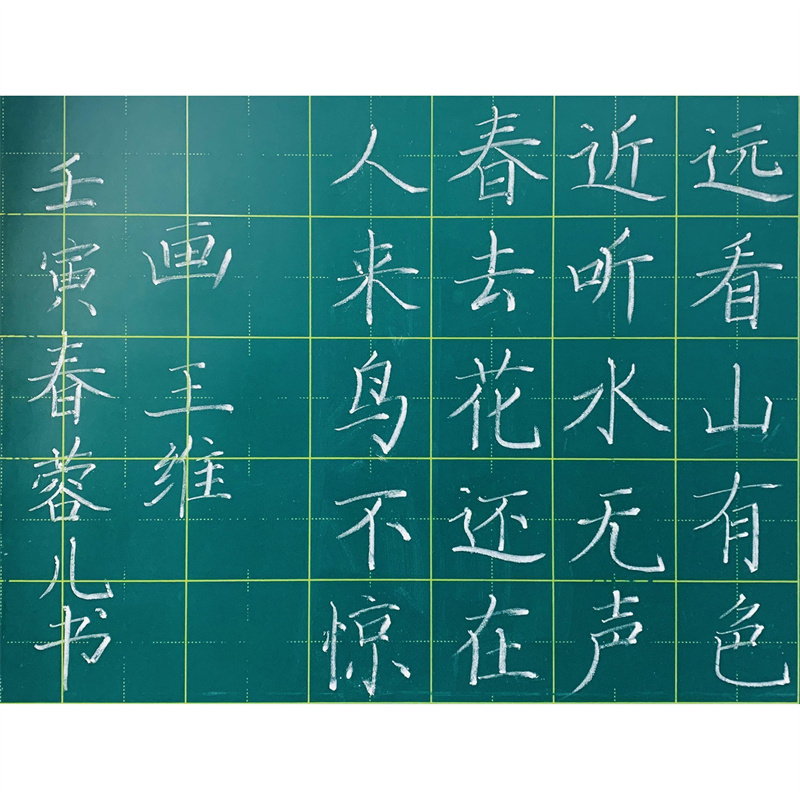 远看山有色
近听水无声
春去花还在
人来鸟不惊
画 王维
壬寅春蓉儿书